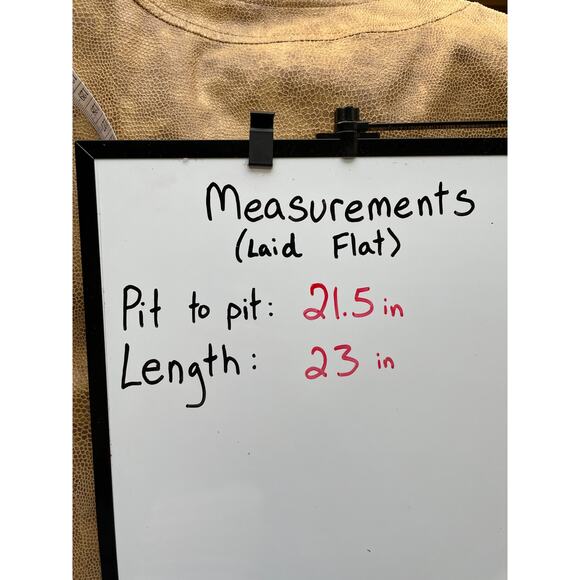 Measurements
(Laid Flat)
Pit to pit: 21.5 in
Length: 23 in